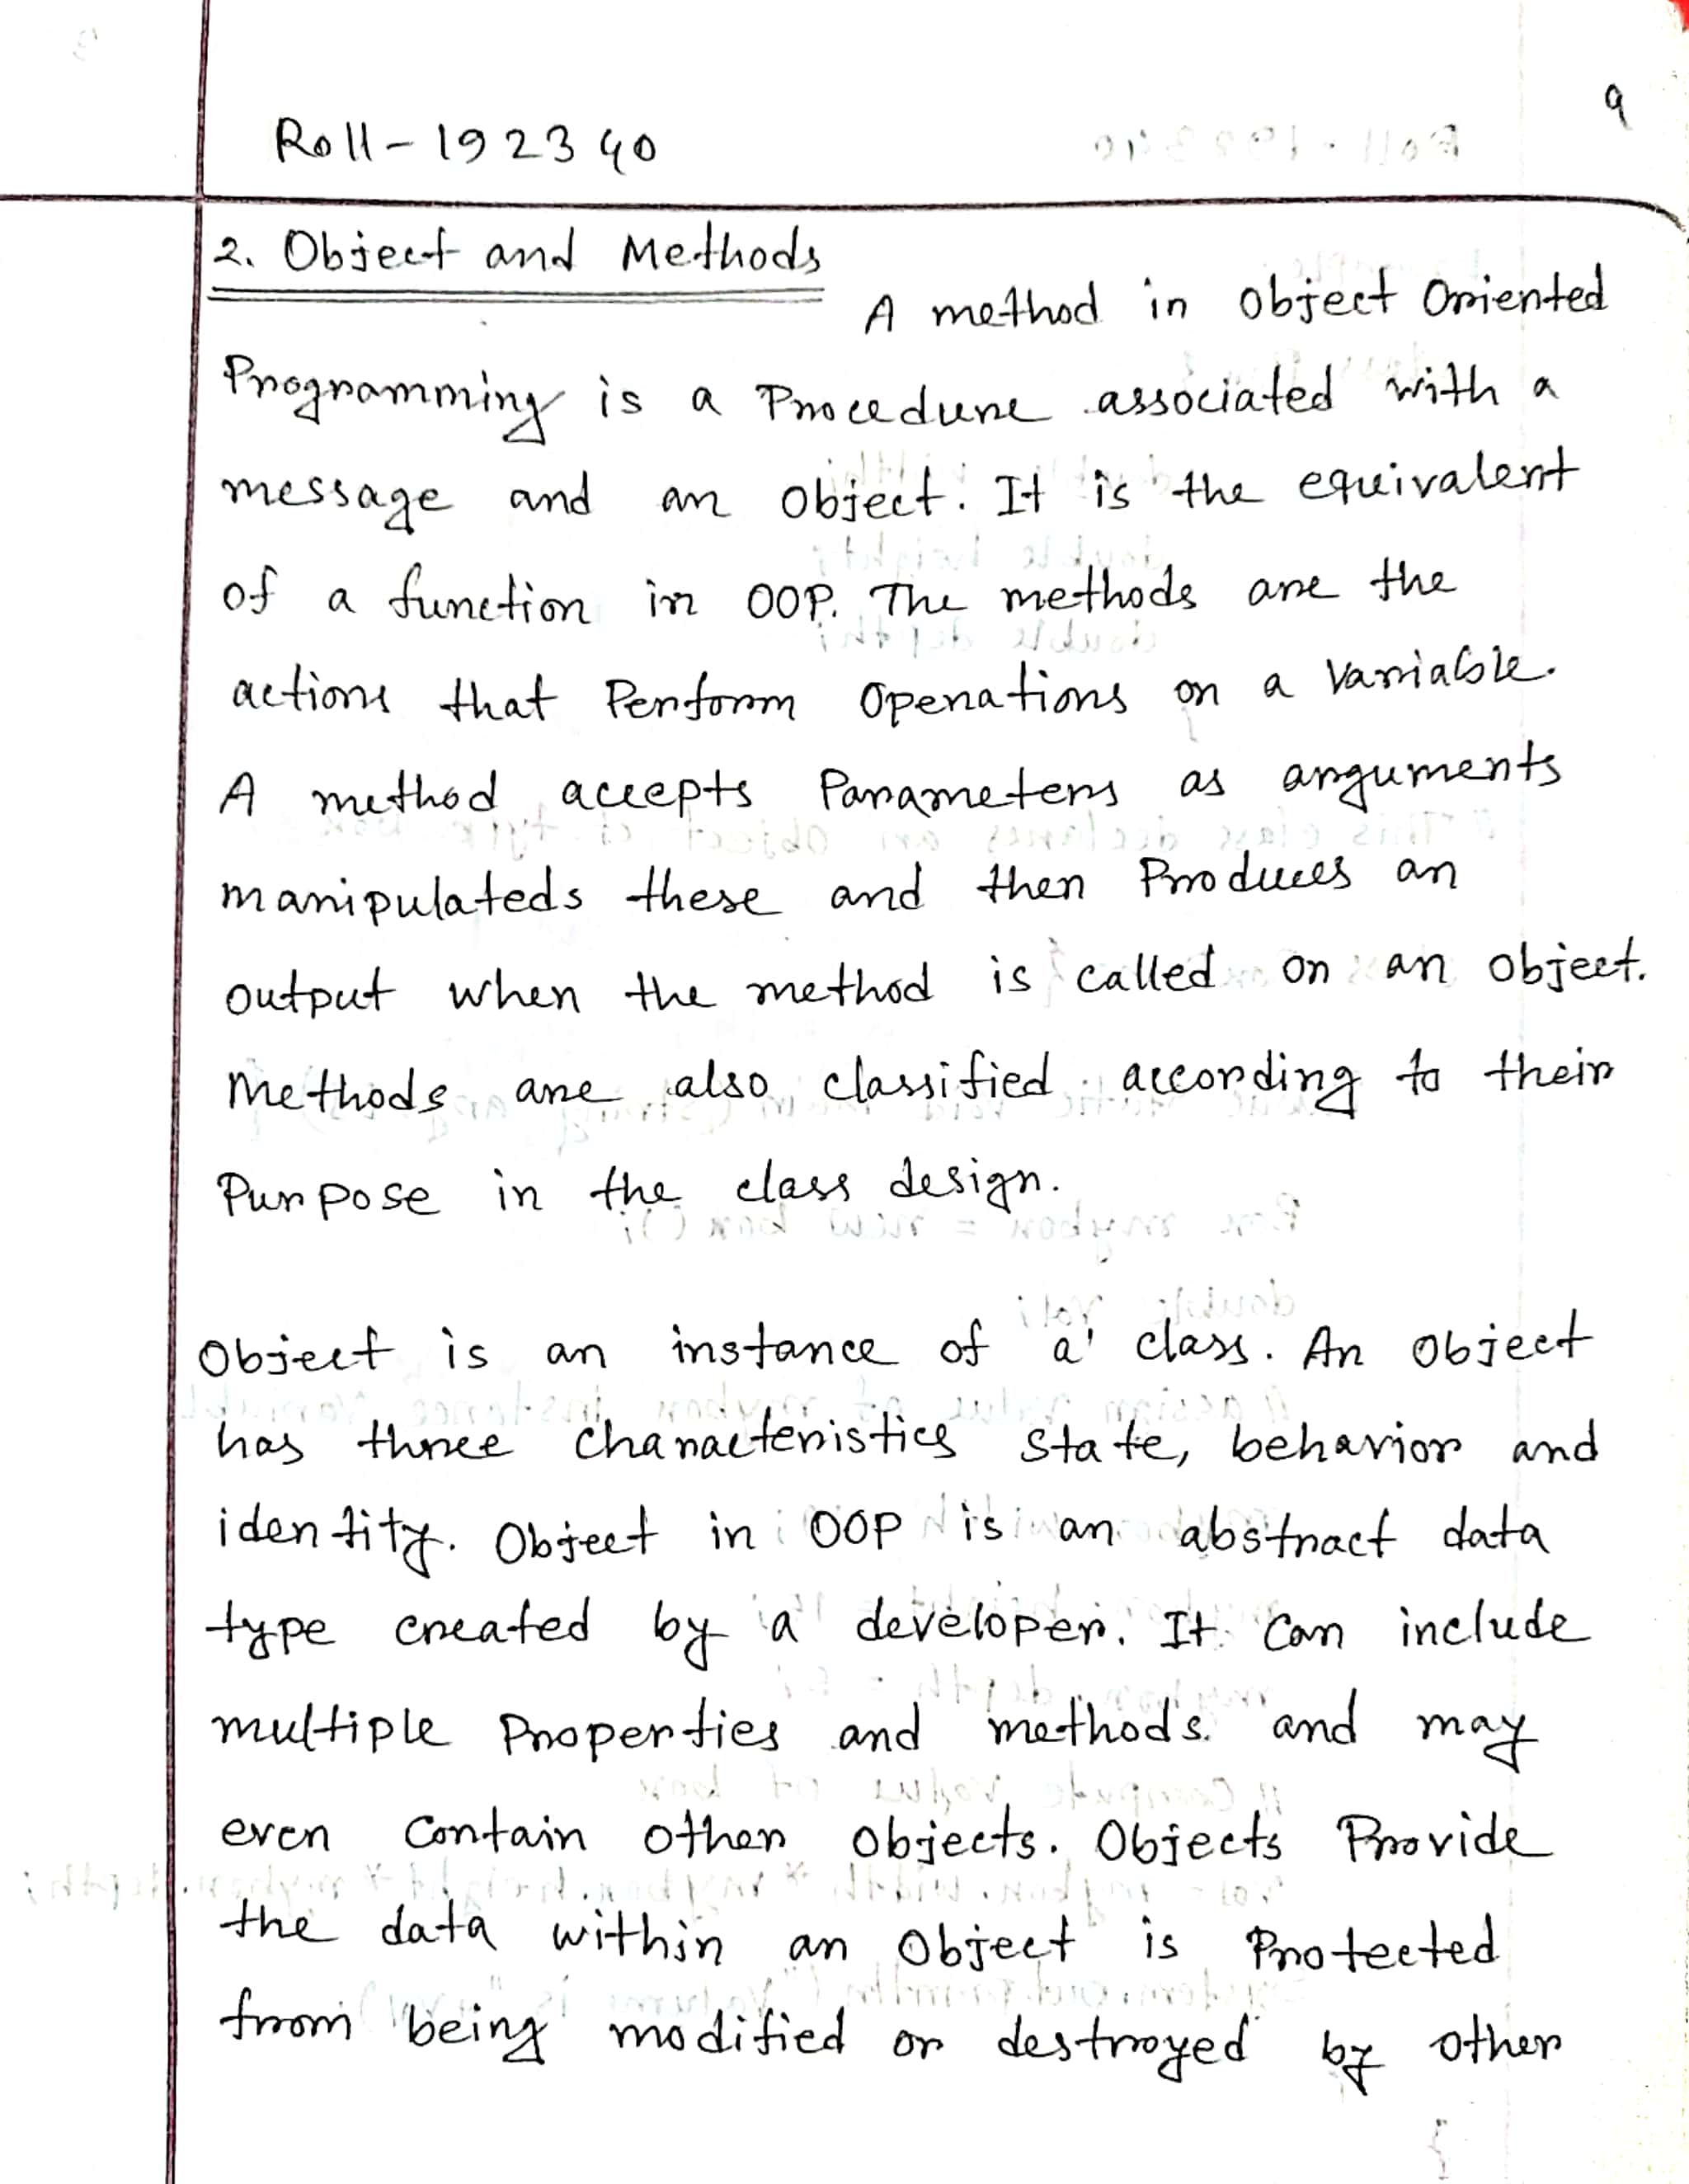 9
Roll-192340
2. Object and Methods
A method in Object Oriented
Programming is a Procedure associated with a
message and an Object. It is the equivalent
of a function in OOP. The methods are the
actions that Perform Operations on a Variable.
A method accepts Parameters as arguments
manipulateds these and then Produces an
output when the method is called on an object.
Methods are also classified according to their
Purpose in the class design.
Object is an instance of a class. An Object
has three characteristics state, behavior and
identity. Object in OOP is an abstract data
type created by a developer. It can include
multiple Properties and methods. and may
even Contain other objects. Objects Provide
the data within an Object is Protected
from being modified or destroyed by other